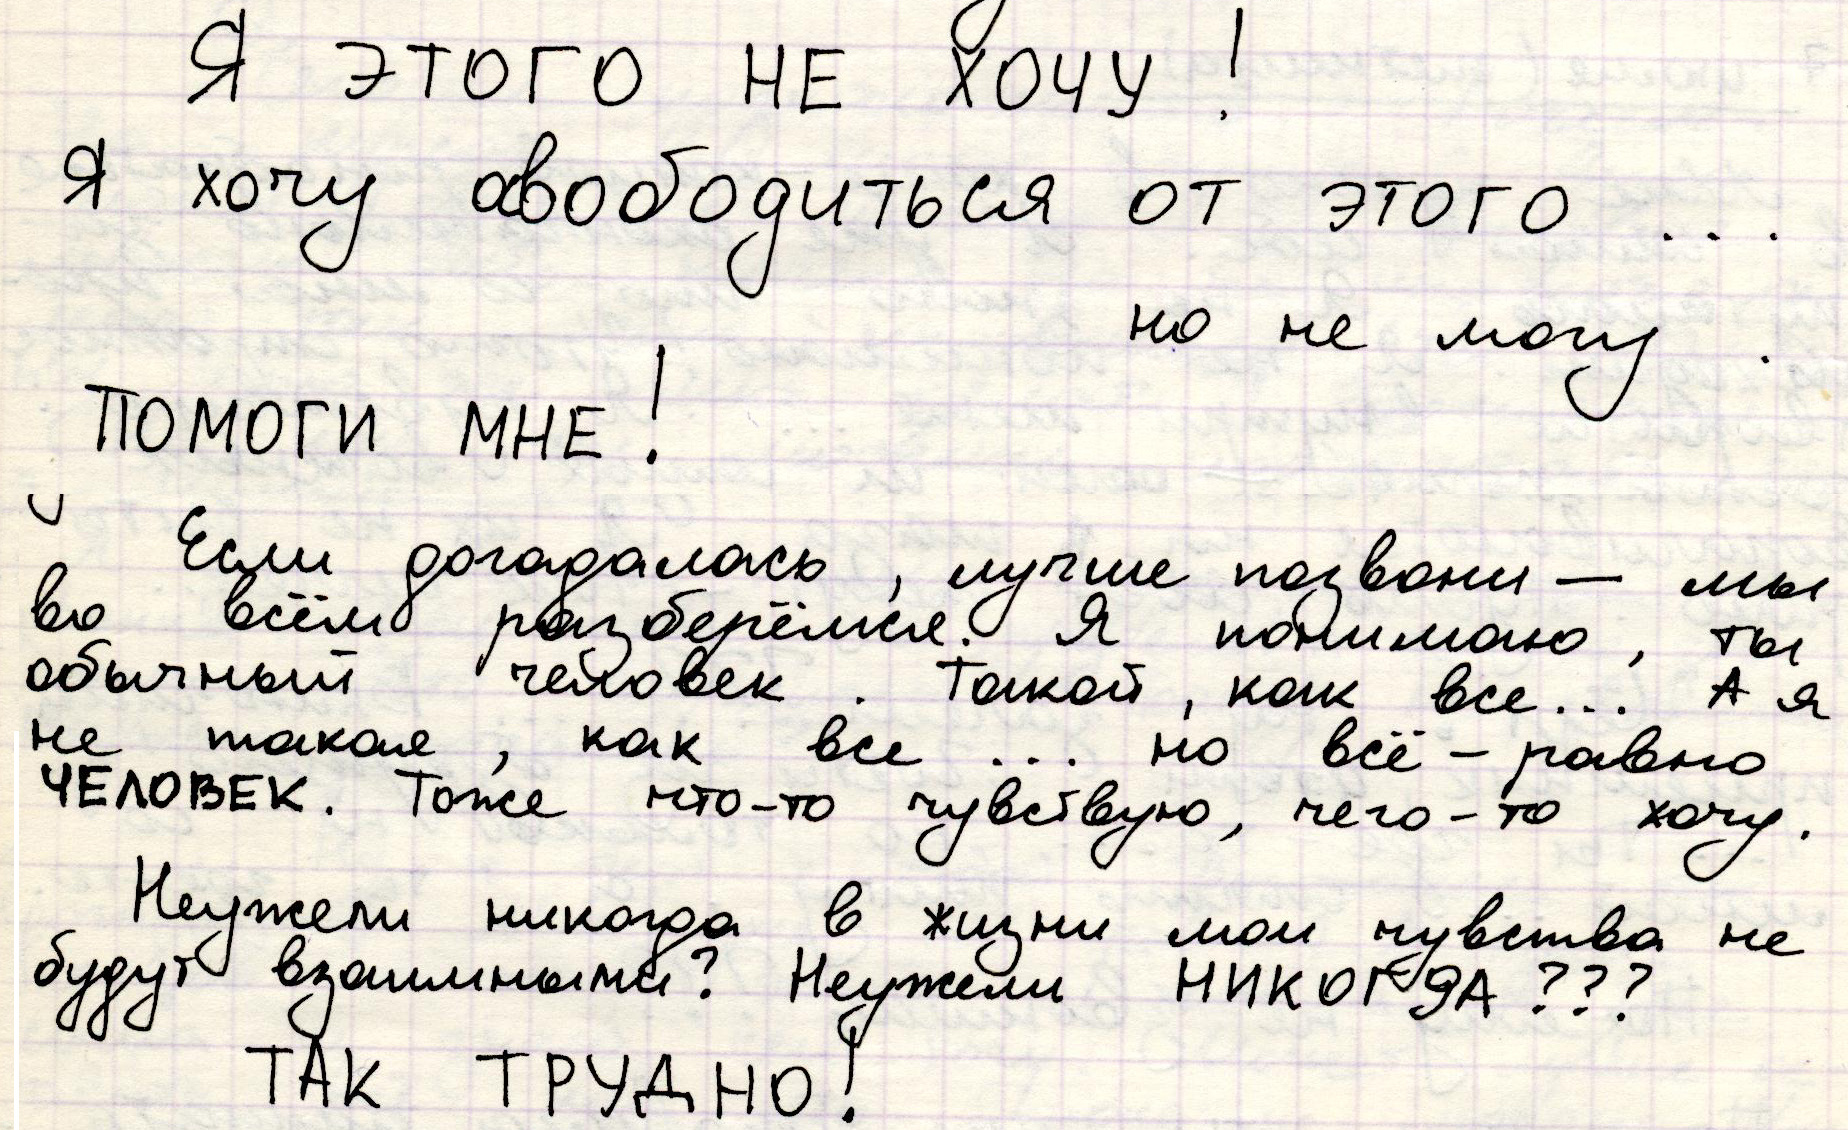 Я ЭТОГО НЕ ХОЧУ!
Я хочу освободиться от этого ...
но не могу .
ПОМОГИ МНЕ!
Если догадалась, лучше позвони — мы
во всём разберёмся. Я понимаю, ты
обычный человек. Такой, как все... А я
не такая, как все ... но всё-равно
ЧЕЛОВЕК. Тоже что-то чувствую, чего-то хочу.
Неужели никогда в жизни мои чувства не
будут взаимными? Неужели НИКОГДА???
ТАК ТРУДНО!